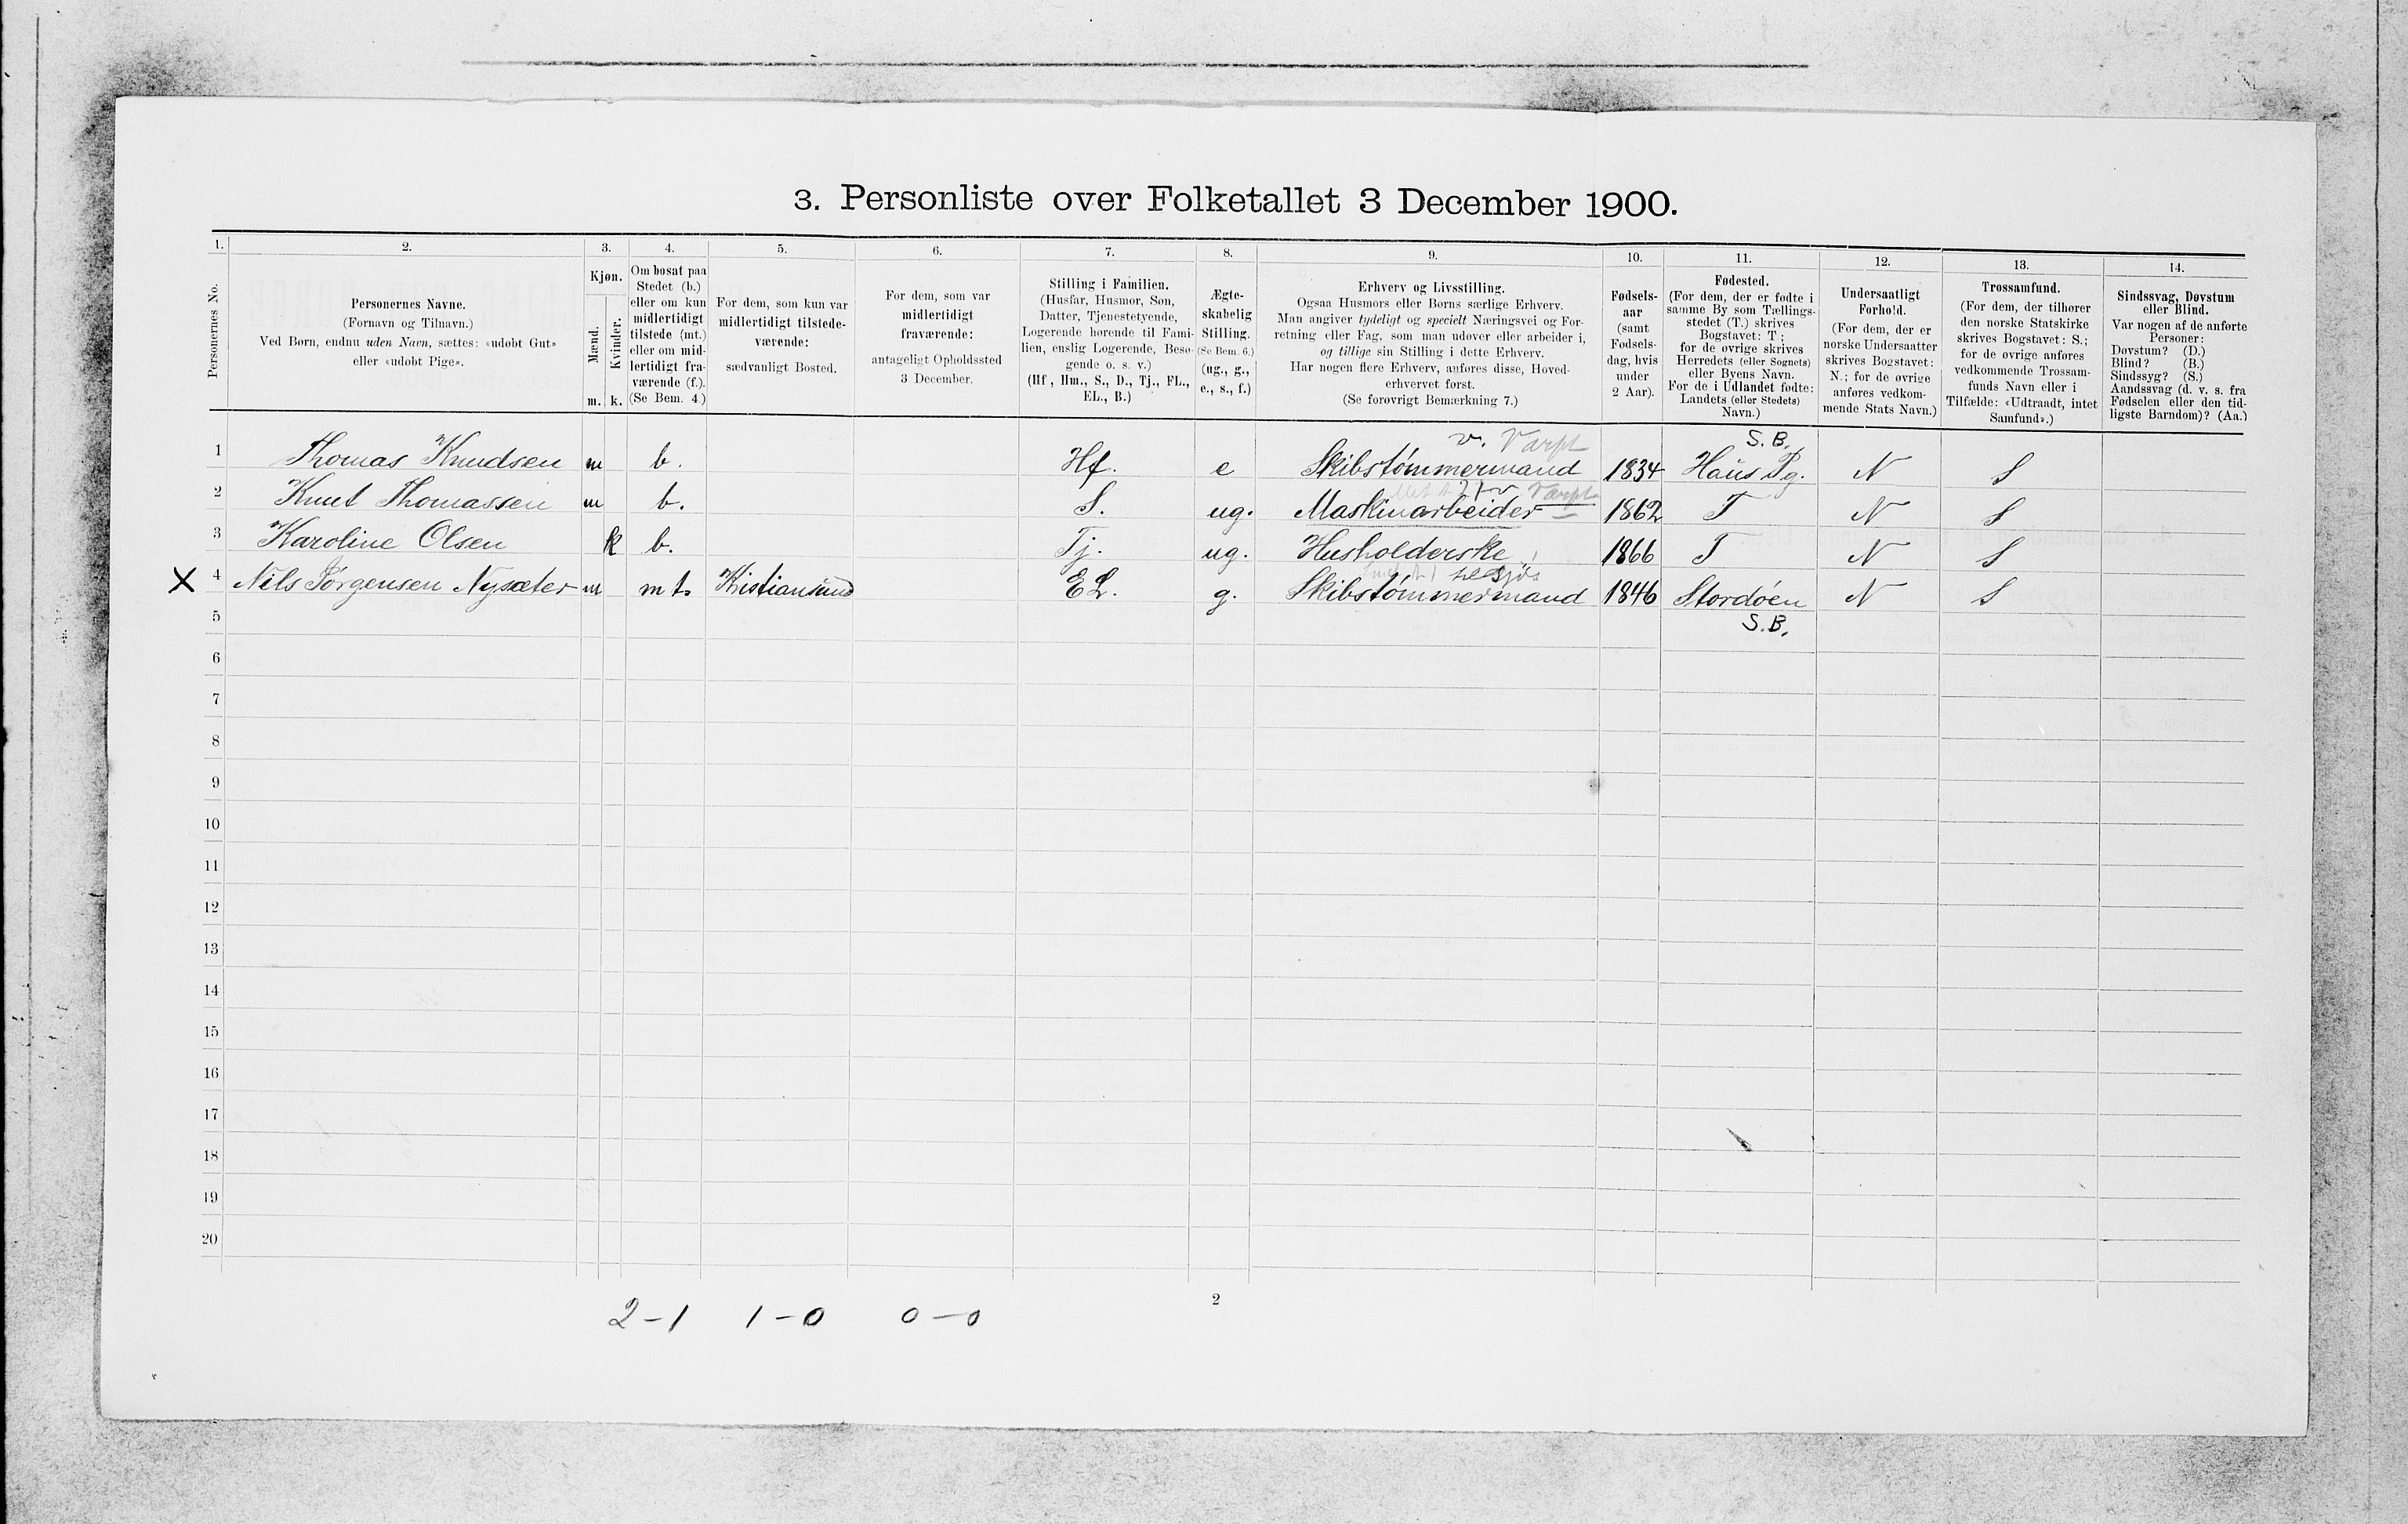 3. Personliste over Folketallet 3 December 1900.
1. 2. 3. 4. 5. 6. 7. 8. 9. 10. 11. 12. 13. 14.
Personernes No.
Personernes Navne.
(Fornavn og Tilnavn.)
Ved Børn, endnu uden Navn, sættes: «udøbt Gut»
eller «udøbt Pige».
Kjøn.
Mænd.
Kvinder.
m. k.
Om bosat paa
Stedet (b.)
eller om kun
midlertidigt
tilstede (mt.)
eller om mid-
lertidigt fra-
værende (f.).
(Se Bem. 4.)
For dem, som kun var
midlertidigt tilstede-
værende:
sædvanligt Bosted.
For dem, som var
midlertidigt
fraværende:
antageligt Opholdssted
3 December.
Stilling i Familien.
(Husfar, Husmor, Søn,
Datter, Tjenestetyende,
Logerende hørende til Fami-
lien, enslig Logerende, Besø-
gende o. s. v.)
(Hf., Hm., S., D., Tj., FL.,
EL., B.)
Ægte-
skabelig
Stilling.
(Se Bem. 6.)
(ug., g.,
e., s., f.)
Erhverv og Livsstilling.
Ogsaa Husmors eller Børns særlige Erhverv.
Man angiver tydeligt og specielt Næringsvei og For-
retning eller Fag, som man udøver eller arbeider i,
og tillige sin Stilling i dette Erhverv.
Har nogen flere Erhverv, anføres disse, Hoved-
erhvervet først.
(Se forøvrigt Bemærkning 7.)
Fødsels-
aar
(samt
Fødsels-
dag, hvis
under
2 Aar).
Fødested.
(For dem, der er fødte i
samme By som Tællings-
stedet (T.) skrives
Bogstavet: T;
for de øvrige skrives
Herredets (eller Sognets)
eller Byens Navn.
For de i Udlandet fødte:
Landets (eller Stedets)
Navn.)
Undersaatligt
Forhold.
(For dem, der er
norske Undersaatter
skrives Bogstavet:
N.; for de øvrige
anføres vedkom-
mende Stats Navn.)
Trossamfund.
(For dem, der tilhører
den norske Statskirke
skrives Bogstavet: S.;
for de øvrige anføres
vedkommende Trossam-
funds Navn eller i
Tilfælde: «Udtraadt, intet
Samfund».)
Sindssvag, Døvstum
eller Blind.
Var nogen af de anførte
Personer:
Døvstum? (D.)
Blind? (B.)
Sindssyg? (S.)
Aandssvag (d. v. s. fra
Fødselen eller den tid-
ligste Barndom)? (Aa.)
v. Varpt S. B.
1 Thomas Knudsen m b. Hf. e Skibstømmermand 1834 Haus Pg. N S
v Varpt
2 Knut Thomassen m b. S. ug. Maskinarbeider 1862 T N S
3 Karoline Olsen k b. Tj. ug. Husholderske 1866 T N S
tilsjøs
X 4 Nils Jørgensen Nysæter m mt. Kristiansund EL. g. Skibstømmermand 1846 Stordøen N S
S.B.
5
6
7
8
9
10
11
12
13
14
15
16
17
18
19
20
2
2-1 1-0 0-0